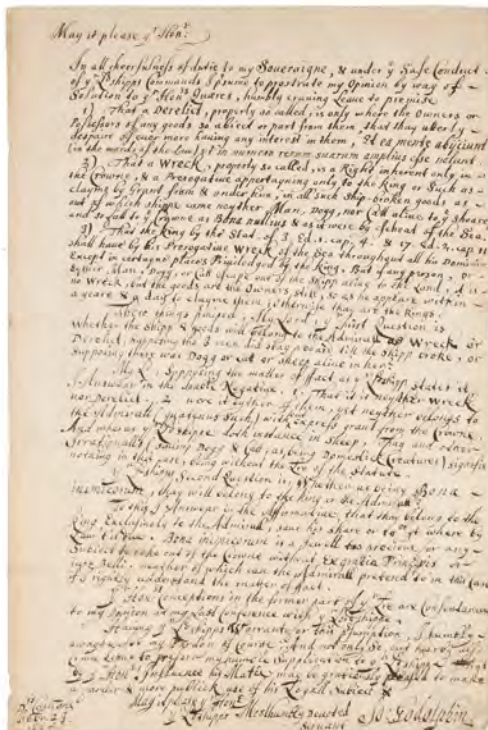 May it please yr Honr.
In all cheerfulness of dutie to my Soueraigne, & under yr Safe Conduct
of yr Ldshipps Commands I p'sume to prostrate my Opinion by way of
Solution to yr Honrs Quæres, humbly craning Leave to premise
1) That a Derelict, properly so called, is only where the Owners or
Possessors of any goods so abiect or part from them, that they uterly
despaire of euer more hauing any interest in them, Et ea mente abjiciunt
(in the words of the Law) yt in numero rerum suarum amplius esse nolunt
2) That a Wreck, properly so called, is a Right inherent only in
the Crowne, & a Prerogative appertayning only to the King or Such as
clayme by Grant from & under him, in all such Ship-broken goods as
out of which shippe came neyther Man, Dogg, nor Catt aliue to ye shoare
and so fall to ye Crowne as Bona nullius & as it were by defeat of the Sea.
3) That the King by the Stat. of 3 Ed. 1. cap. 4. & 17. Ed. 2. cap. 11
shall haue by his Prerogative Wreck of the Sea throughout all his Dominions
Except in certayne places Priviledged by the King. But if any person, or
eyther Man, Dogg, or Catt escape out of the Shipp aliue to the Land, it is
no Wreck, but the goods are the Owners still, so as he appeare within
a yeare & a day to clayme them; otherwise they are the Kings.
These things p'mised, My Lord, yr first Question is
Whether the Shipp & goods will belong to the Admirall as Wreck or
Derelict, supposing the 3 men did stay aboard till the Shipp broke, or
supposing there was Dogg or cat or sheep aliue in her?
My L. Supposing the matter of fact as yr Ldshipp states it,
I Answear in the Negative. 1. That it is neyther Wreck
nor Derelict. 2. were it eyther of them, yet neyther belongs to
the Admirall (quatenus Such) without Express grant from the Crowne.
And whereas yr Ldshipp doth instance in Sheep, They and other
Irrationalls (sauing Dogg & Catt, as being Domestick Creatures) signifie
nothing in this case, being without the of the Statute.
yr Ldshipps Second Question is, Whether as being Bona
inimicorum, they will belong to the King or the Admirall?
To this I Answear in the Affirmatiue, that they belong to the
King Exclusively to the Admirall, saue his share or 10th where by
Law tis due. Bona inimicorum is a Jewell too precious for any
Subiect to take out of the Crowne without Ex gratia Principis or
iure Belli: neyther of which can the Admirall pretend to in this Case
if I rightly understand the matter of fact.
yr Honrs conceptions in the former part of yr Lre are Consentaneous
to my Opinion in my last Conference with yr Lordshippe.
Hauing yr Ldshipps Warrant for this p'sumption, I humbly
my Pardon of Course; And not only so, but
Leaue to prefer my humble Supplication to yr Ldshipp
by yr Honrs Influence his Matie may be graciously pleased to make
a & more publick use of his Loyall Subiect &
May it please yr Honr
yr Ldshipps Most humbly Devoted
Servant
Jo: Godolphin